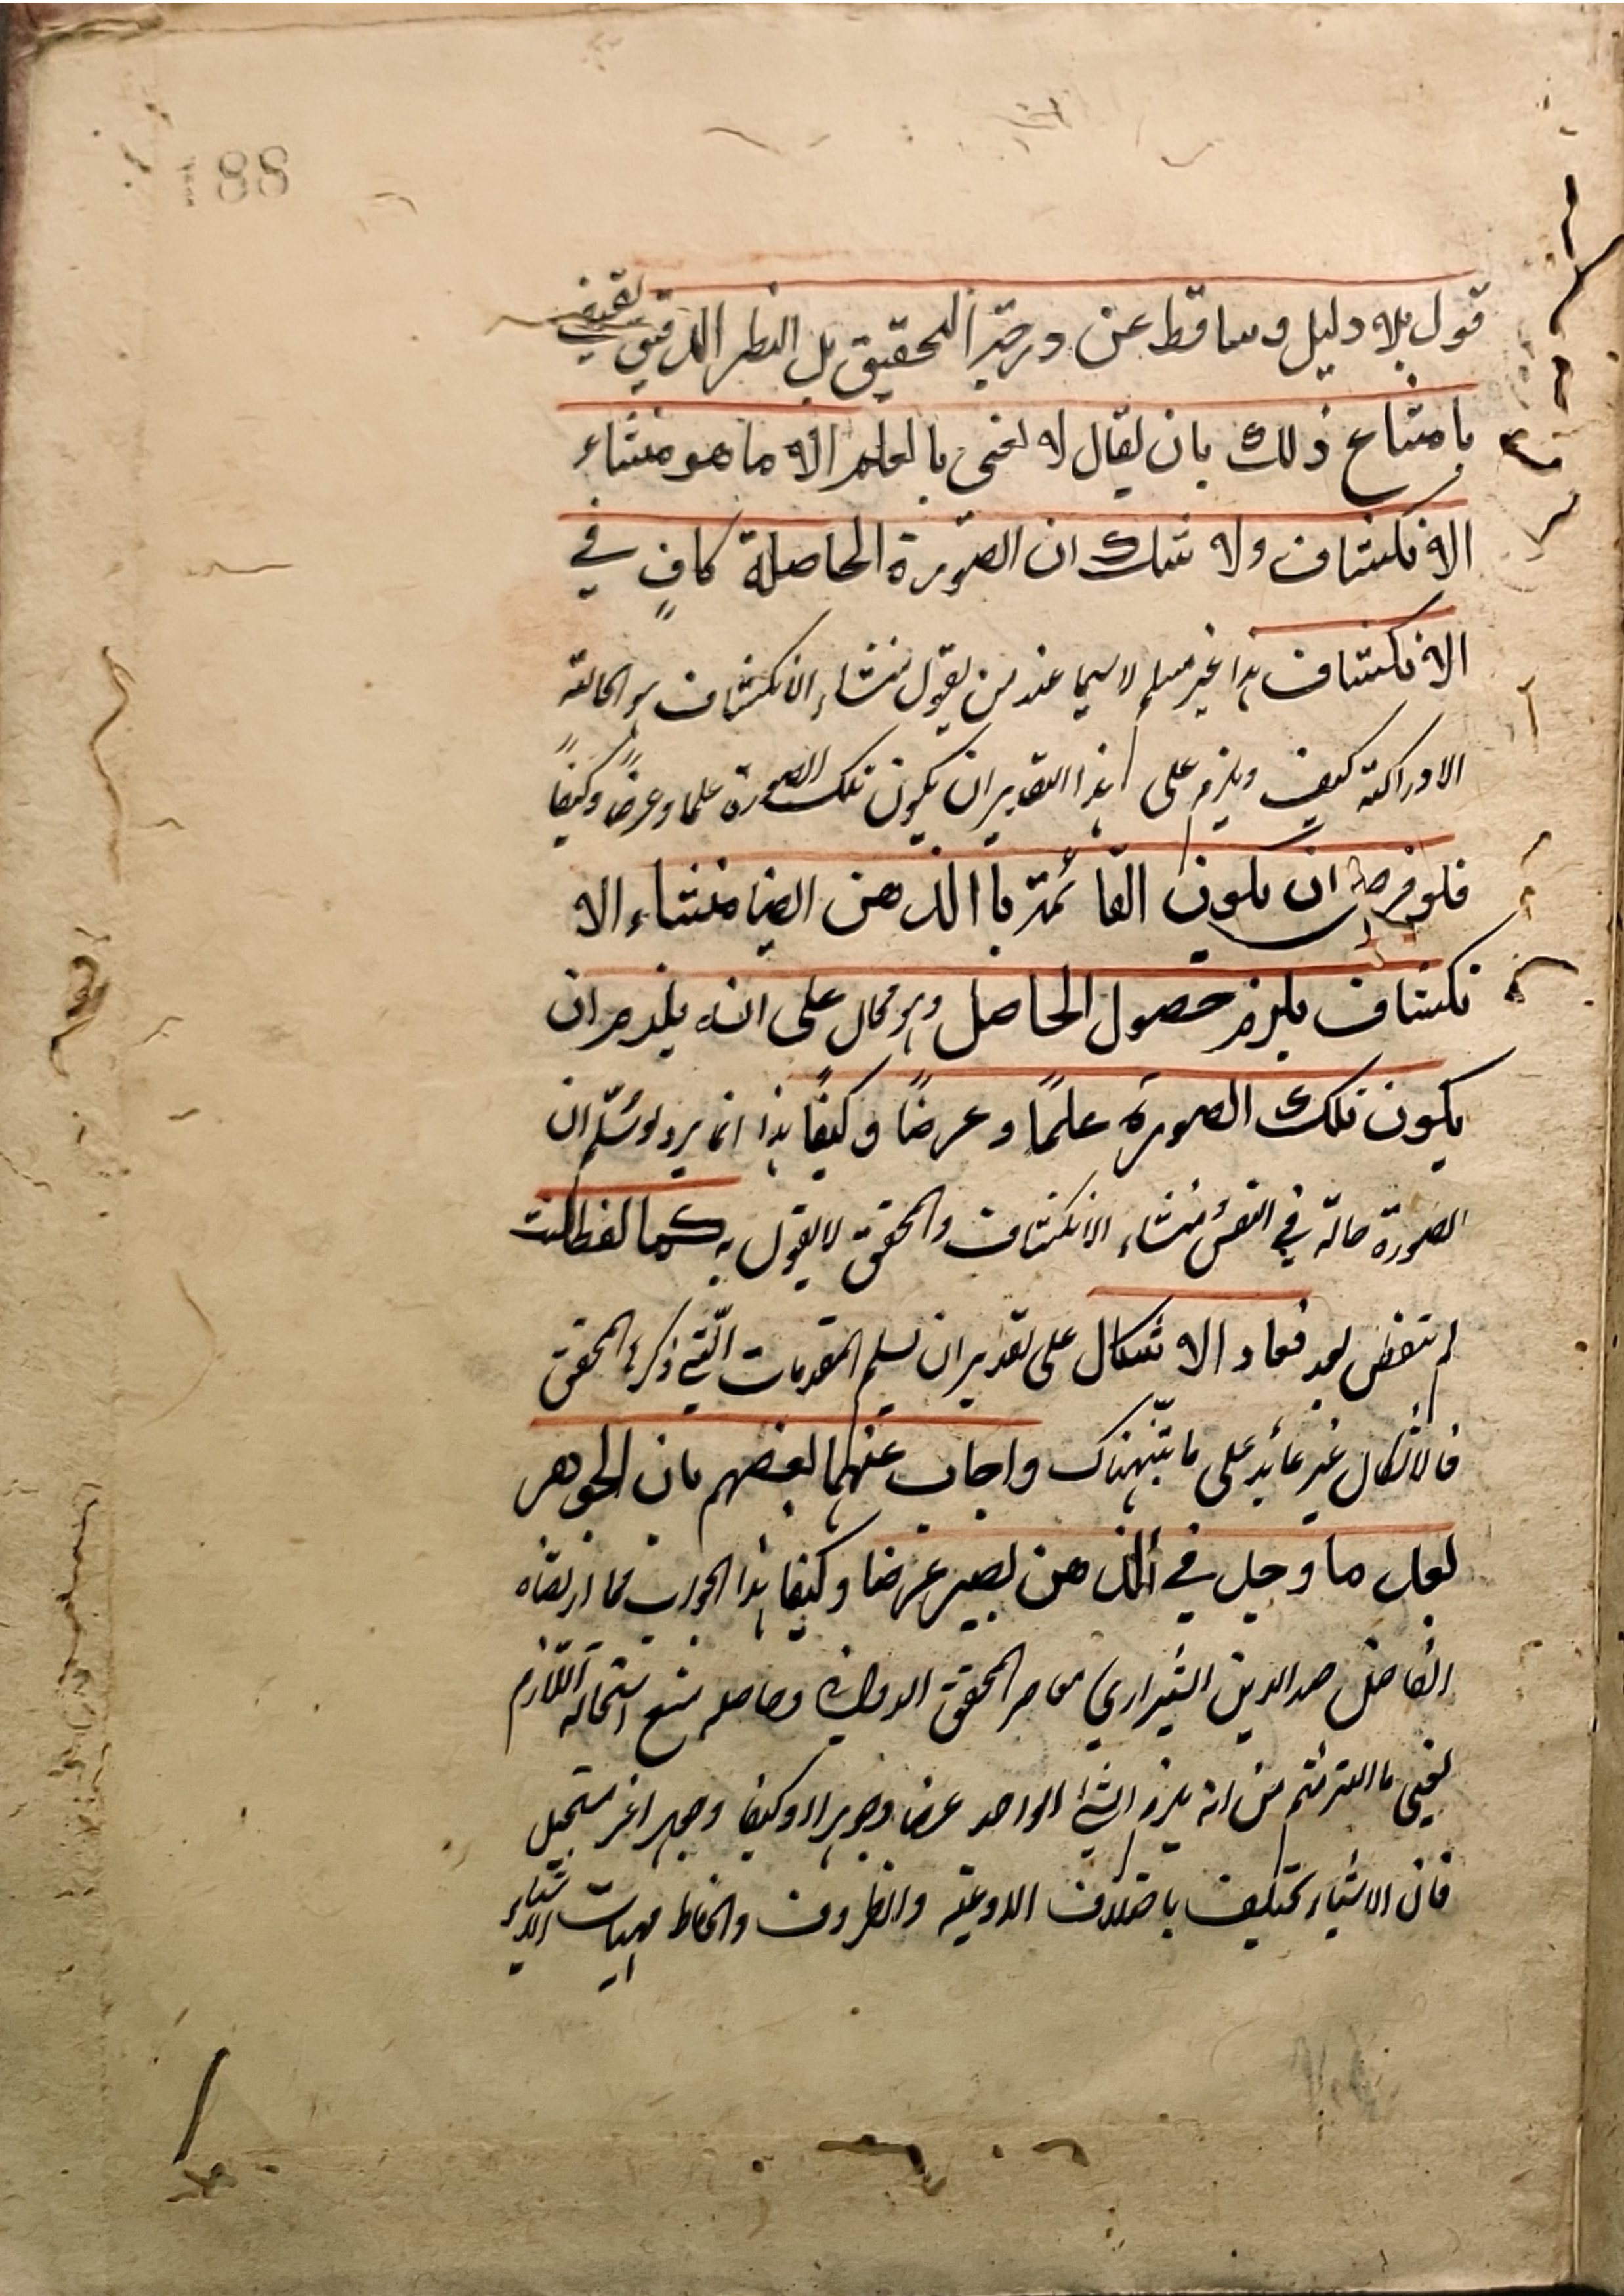 188
قول بلا دليل وساقط عن درجة التحقيق بل النظر الدقيق يقتضي
بامتناع ذلك بان يقال لا نعنى بالعلم الا ما هو منشاء
الانكشاف ولا شك ان الصورة الحاصلة كافٍ في
الانكشاف هذا غير مسلم لا سيما عند من يقول منشاء الانكشاف هو الحالة
الادراكية كيف ويلزم على هذا التقدير ان يكون تلك الصورة علما وعرضًا وكيفًا
فلو فرض ان يكون القائمة باالذهن ايضا منشاء الا
نكشاف يلزم حصول الحاصل وهو محال على انه يلزم ان
يكون تلك الصورة علمًا وعرضًا وكيفًا هذا انما يرد لو سُلّم ان
الصورة حالة في النفس منشاء الانكشاف والمحقق لا يقول به كما لفظالبت
لم تنقض بعد فعاد الاشكال على تقدير ان نسلم المقدمات الّتي ذكرها المحقق
فالاشكال غير عائد على ما نبّهناك واجاب عنهما بعضهم بان الجوهر
بعد ما وجد في الذهن يصير عرضا وكيفا هذا الجواب مما ارتضاه
الفاضل صدر الدين الشيرازي معاصر المحقق الدواني وحاصله منع استحالة اللازم
يعني ما التزمتم من انه يلزم الشئ الواحد عرضا وجوهرا او كيفا وجوهرا غير مستحيل
فان الاشياء تختلف باختلاف الاوعية والظروف وانحفاظ مهيات الاشياء